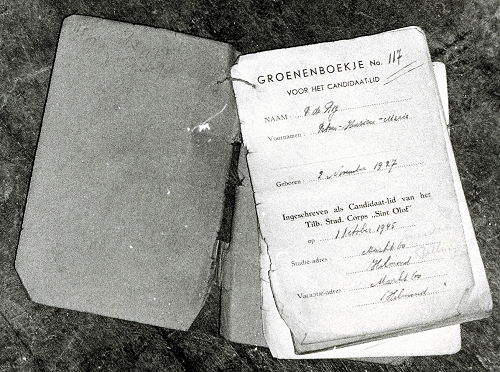 GROENENBOEKJE No. 117
VOOR HET CANDIDAAT-LID
NAAM: P. de
Voornamen: Marie
Geboren: 2 November 1927
Ingeschreven als Candidaat-lid van het
Tilb. Stud. Corps „Sint Olof"
op 1 October 1945
Studie-adres: Markt 60
Helmond
Vacantie-adres: Markt 60
Helmond